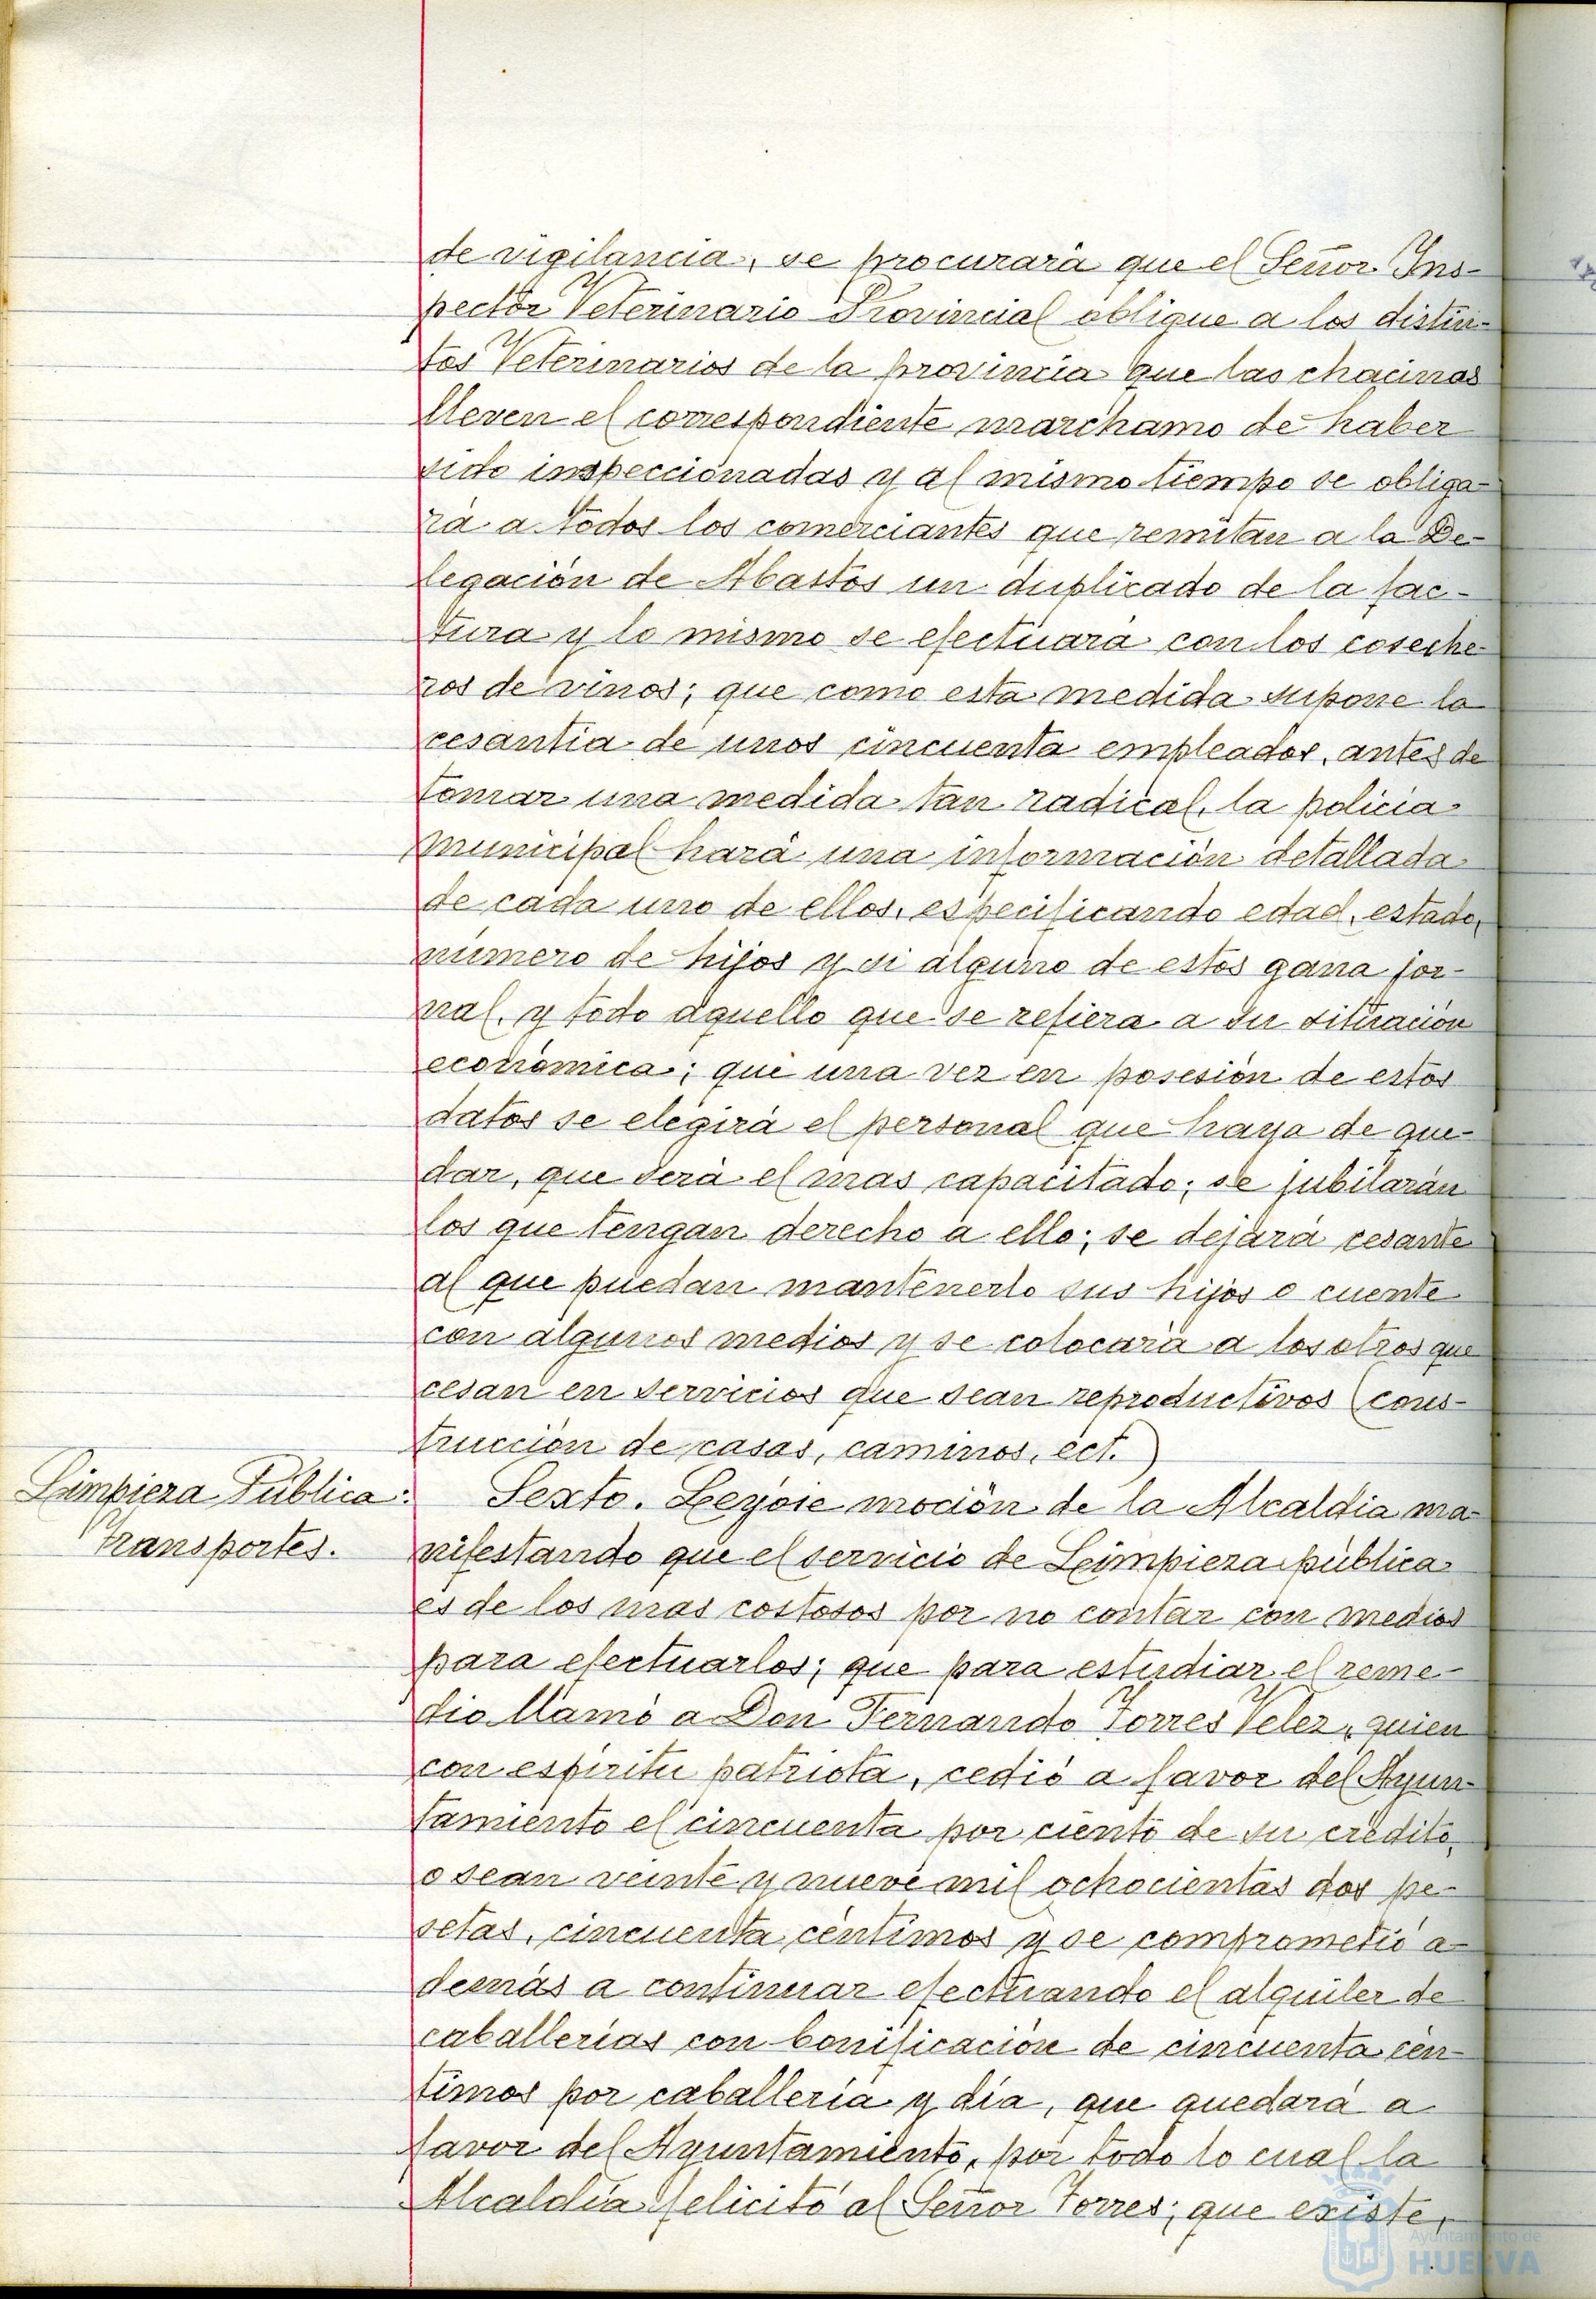 de vigilancia, se procurará que el Señor Ins-
pector Veterinario Provincial oblique a los distin-
tos Veterinarios de la provincia que las chacinas
lleven el correspondiente marchamo de haber
sido inspeccionadas y al mismo tiempo se obliga-
rá a todos los comerciantes que remitan a la De-
legación de Abastos un duplicado de la fac-
tura y lo mismo se efectuará con los coseche-
ros de vinos; que como esta medida supone la
cesantia de unos cincuenta empleados, antes de
tomar una medida tan radical, la policia
municipal hará una información detallada
de cada uno de ellos, especificando edad, estado,
número de hijos y si alguno de estos gana jor-
nal, y todo aquello que se refiera a su situación
económica; que una vez en posesión de estos
datos se elegirá el personal que haya de que-
dar, que será el mas capacitado; se jubilarán
los que tengan derecho a ello; se dejará cesante
al que puedan mantenerlo sus hijos o cuente
con algunos medios y se colocará a los otros que
cesan en servicios que sean reproductivos (cons-
trucción de casas, caminos, ect.)
Limpieza Pública:
Transportes.
Sexto. Leyóse moción de la Alcaldía ma-
nifestando que el servicio de Limpieza pública
es de los mas costosos por no contar con medios
para efectuarlos; que para estudiar el reme-
dio llamó a Don Fernando Torres Velez, quien
con espíritu patriota, cedió a favor del Ayun-
tamiento el cincuenta por ciento de su crédito,
o sean veinte y nueve mil ochocientas dos pe-
setas, cincuenta céntimos y se comprometió a-
demás a continuar efectuando el alquiler de
caballerías con bonificación de cincuenta cén-
timos por caballería y día, que quedará a
favor del Ayuntamiento, por todo lo cual la
Alcaldía felicitó al Señor Torres; que existe,
Ayuntamiento de
HUELVA